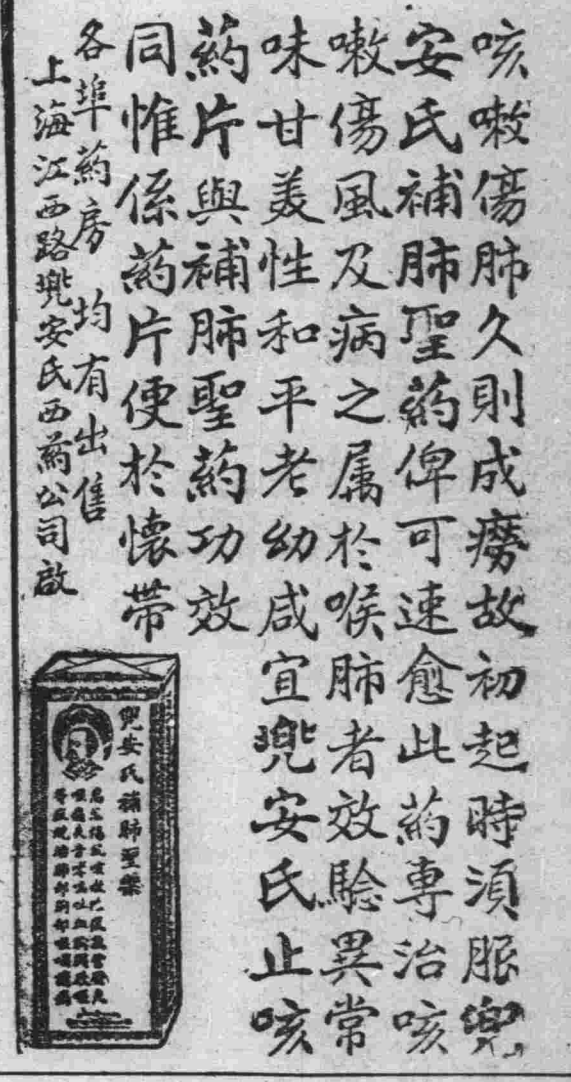 咳嗽傷肺久則成癆故初起時須服兜
安氏補肺聖葯俾可速愈此葯專治咳
嗽傷風及病之属於喉肺者效驗異常
味甘美性和平老幼咸宜兜安氏止咳
葯片與補肺聖葯功效
同惟係葯片便於懷带
各埠葯房均有出售
上海江西路兜安氏西葯公司啟
兜安氏補肺聖藥